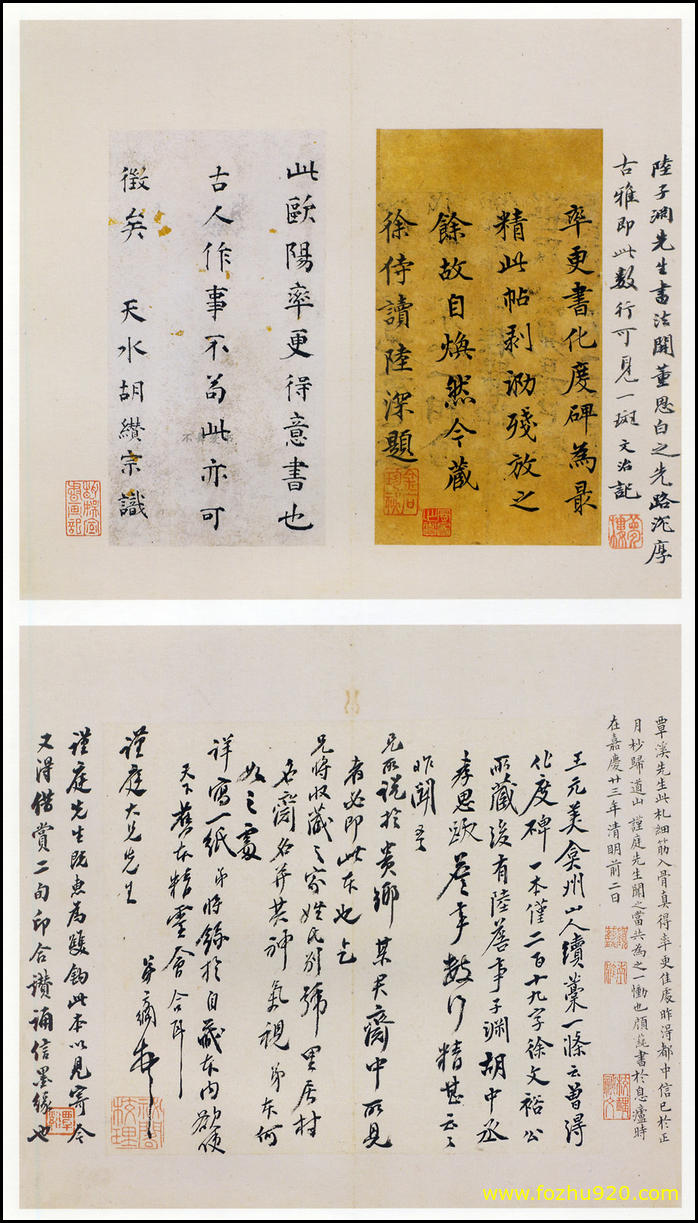 陸子淵先生書法開董思白之先路沉厚
古雅即此數行可見一斑 文治記
率更書化度碑為最
精此帖剥泐殘放之
餘故自煥然今藏
徐侍讀 陸深題
此歐陽率更得意書也
古人作事不苟此亦可
徵矣 天水胡纘宗識
覃溪先生此札細筋入骨真得率更佳處昨得都中信已於正
月杪歸道山 謹庭先生聞之當共為之一慟也 顧蒓書於息廬時
在嘉慶廿三年清明前二日
王元美弇州山人續藁一條云曽得
化度碑一本僅二百十九字徐文裕公
所藏後有陸詹事子淵胡中丞
孝思跋詹事數行精甚云云
昨聞
兄所說於貴鄉某君齋中所見
者必即此本也乞
兄將收藏之家姓氏別號里居村
名齋名并其神氣視弟本何
如之處
詳寫一紙弟將錄於自藏本内欲使
天下舊本精靈會合耳
謹庭大兄先生
弟方綱
謹庭先生既惠為雙鈎此本以見寄今
又得借賞二句印合讚誦信墨緣也
www.fozhu920.com